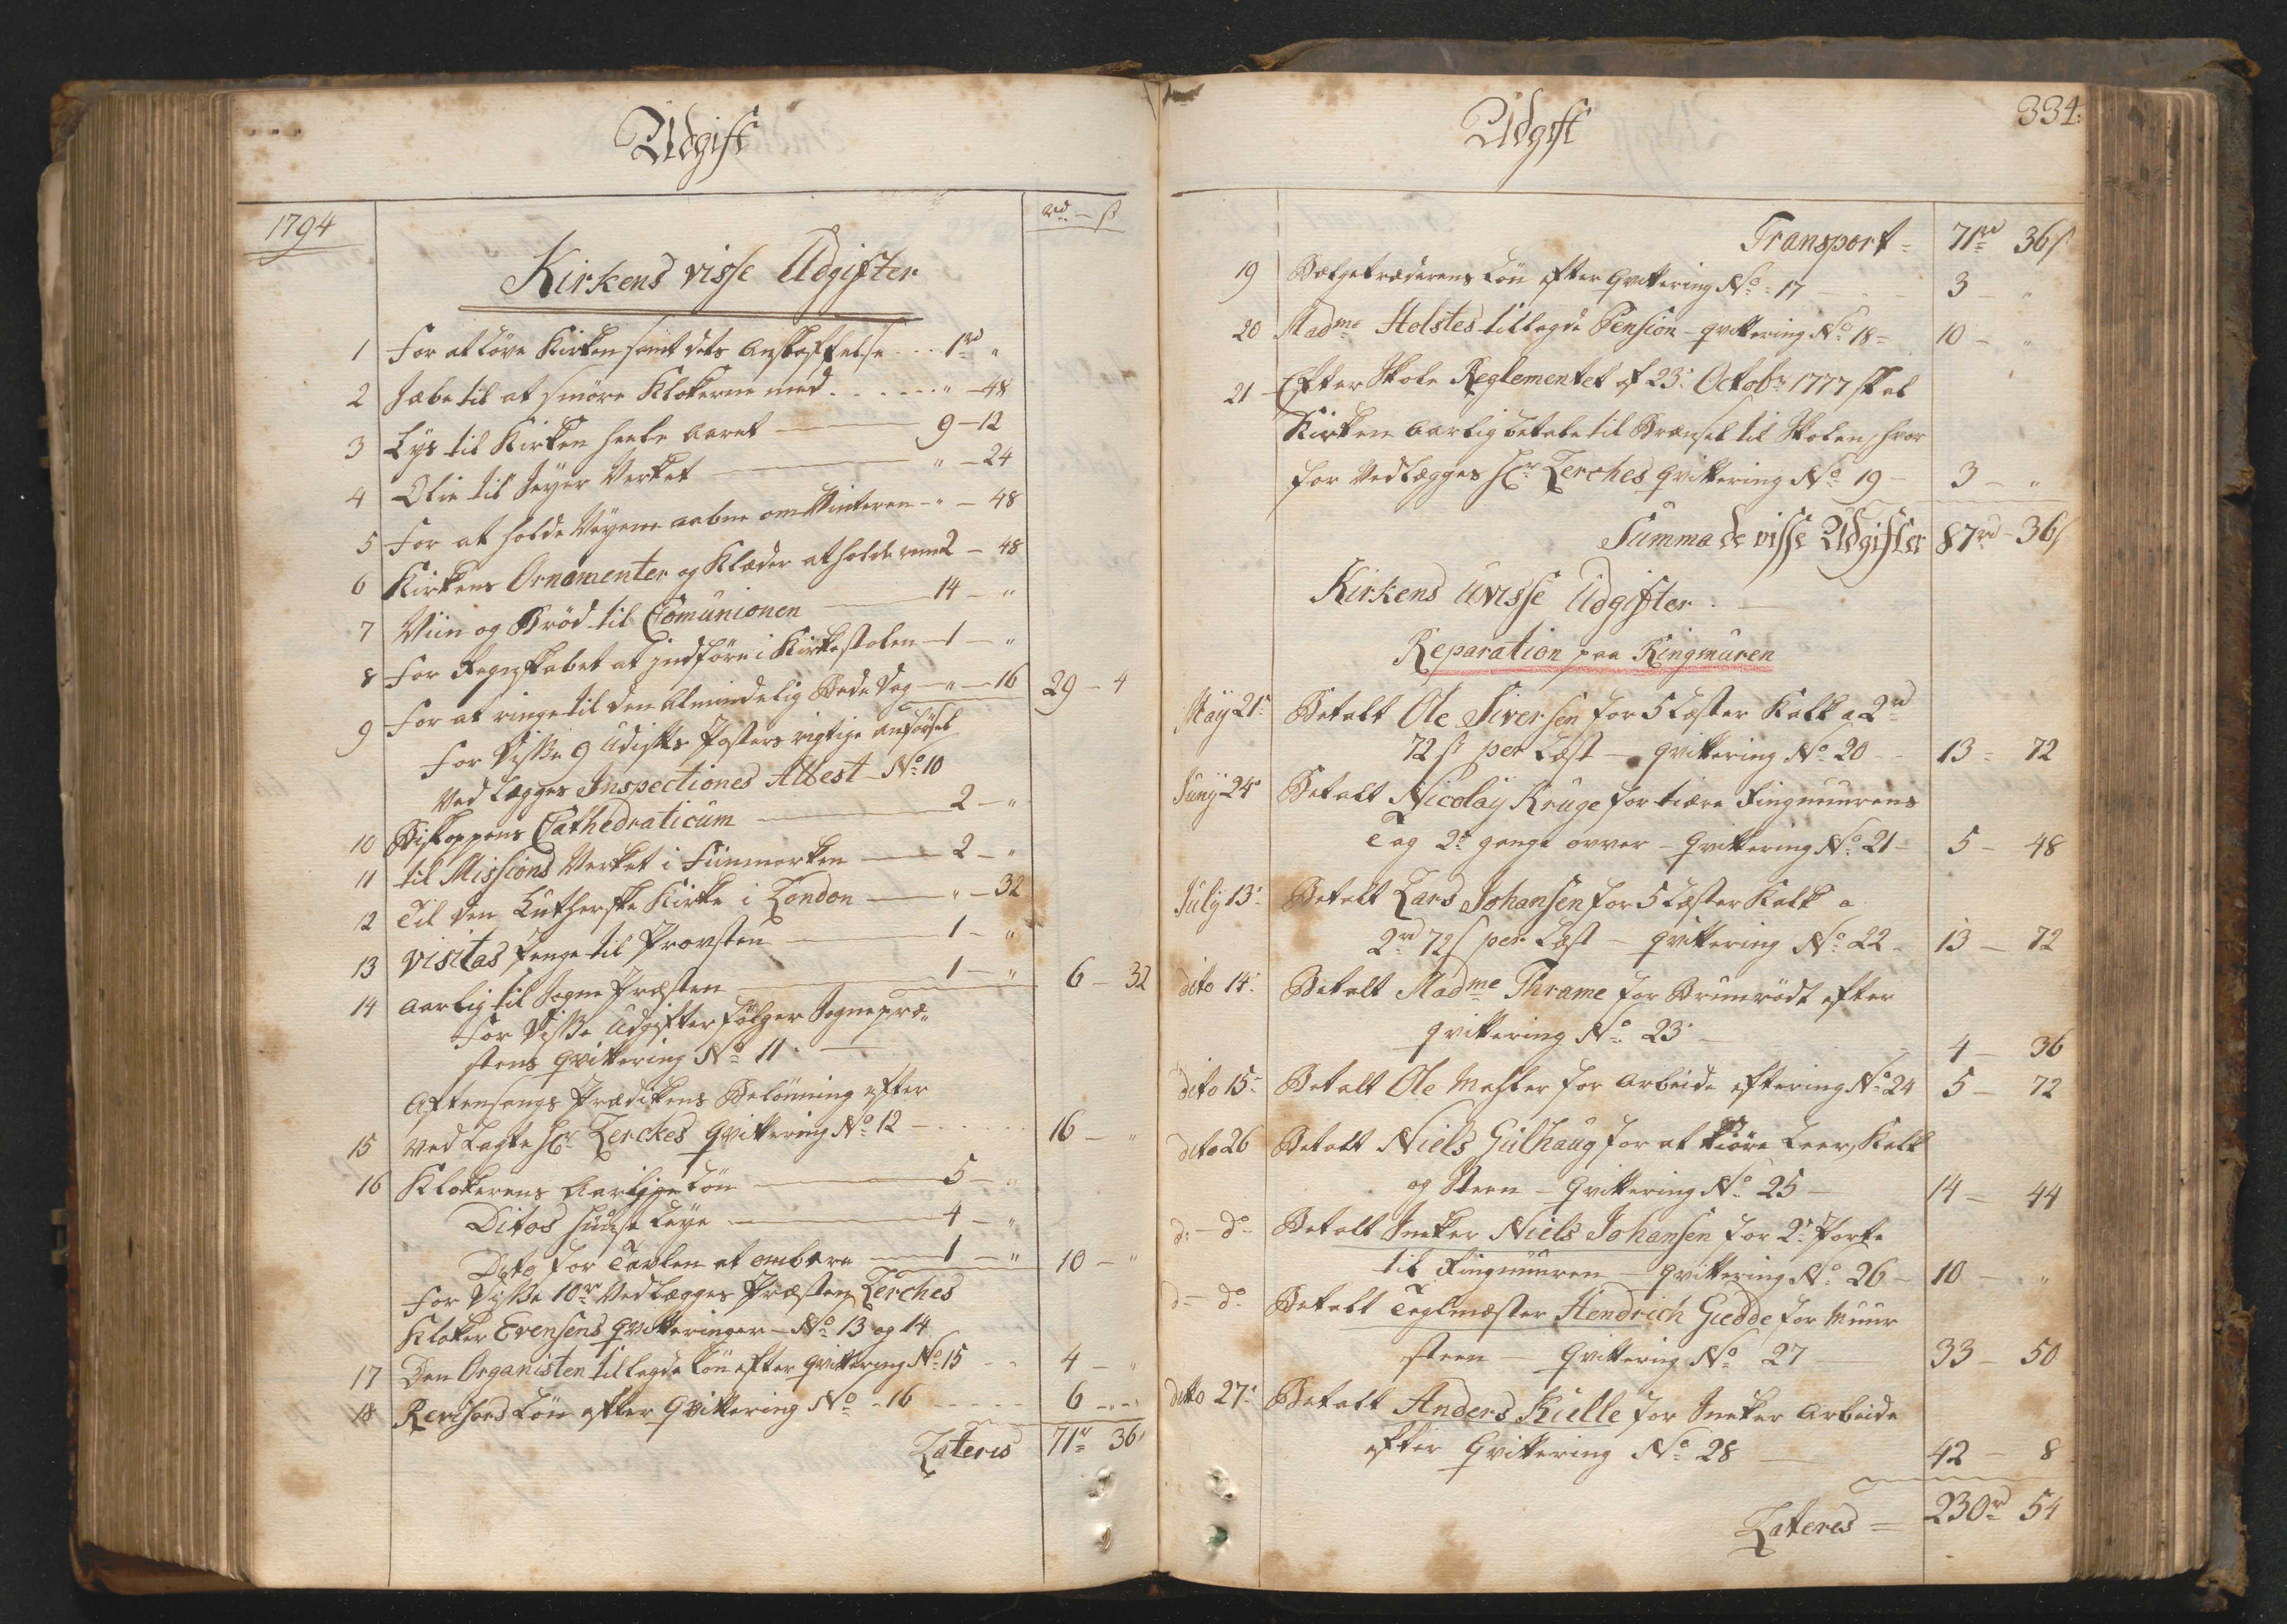 Udgift
1794
rd – ß
Kirkens visse Udgifter
1 For at Löve Kirken samt dets Anskaffelse 1rd "
2 Sæbe til at smöre Klokerne med " – 48
3 Lys til Kirken heele Aaret 9 – 12
4 Olie til Seyer Verket " – 24
5 For at holde Veyene aabne om Vinteren " – 48
6 Kirkens Ornamenter og Klæder at holde reene 2 – 48
7 Viin og Bröd til Comunionen 14 – "
8 For Regnskabet at indföre i Kirkestolen 1 – "
9 For at ringe til den Almindelig Bede Dag " – 16 29 – 4
For Disse 9 Udgifts Posters rigtige Anförsel
Vedlægges Inspectiones Attest No 10
10 Biskoppens Cathedraticum 2 – "
11 til Missions Verket i Finmarken 2 – "
12 Til den Lutherske Kirke i London " – 32
13 Visitas Penge til Provsten 1 – "
14 Aarlig til Sogne Præsten 1 – " 6 – 32
For Disse Udgifter fölger Sognepræ-
stens Qvittering No 11
Aftensangs Prædikens Belönning efter
15 vedlagte Hr Lerches Qvittering No 12 16 – "
16 Klokerens Aarlige Lön 5 – "
Ditos Huuse Leye 4 – "
Dito for Tavlen at ombære 1 – " 10 – "
For Disse 10rd Vedlægges Præsten Lerches
Kloker Evensens Qvitteringer – No 13 og 14
17 Den Organisten tillagde Lön efter Qvittering No 15 4 – "
18 Revisors Lön efter Qvittering No 16 6 – "
Lateris 71r 36
Udgift
334.
Transport 71rd 36ß
19 Bælgetræderens Lön efter Qvittering No 17 3 – "
20 Madme Holstes tillagde Pension – Qvittering No 18 10 – "
21 Efter Skole Reglementet af 23: Octobr 1777 skal
Kirken Aarlig betale til Brænsel til Skolen, hvor
for Vedlægges Hr Lerches Qvittering No 19 3 – "
Summa de visse Udgifter 87rd 36ß
Kirkens Uvisse Udgifter
Reparation paa Ringmuren
May 21: Betalt Ole Siversen for 5 Læster Kalk a 2rd
72 ß per Læst – Qvittering No 20 13 – 72
Juny 24: Betalt Nicolay Kruge for tiære Ringmuurens
Tag 2de gange over – Qvittering No 21 5 – 48
July 13: Betalt Lars Johansen for 5 Læster Kalk a
2rd 72ß per Læst – Qvittering No 22 13 – 72
dito 14: Betalt Madme Thrame for Bruunrödt efter
Qvittering No 23 4 – 36
dito 15: Betalt Ole Mahler for Arbeide eftering No 24 5 – 72
dito 26 Betalt Niels Gulhaug for at kiöre Leer, Kalk
og Steen – Qvittering No 25 14 – 44
d: – do Betalt Sneker Niels Johansen for 2de Porte
til Ringmuuren – Qvittering No 26 10 – "
d – do Betalt Teglmæster Hendrich Giedde for Muur
steen – Qvittering No 27 33 – 50
dito 27: Betalt Anders Kielle for Sneker Arbeide
efter Qvittering No 28 42 – 8
Lateres 230rd 54